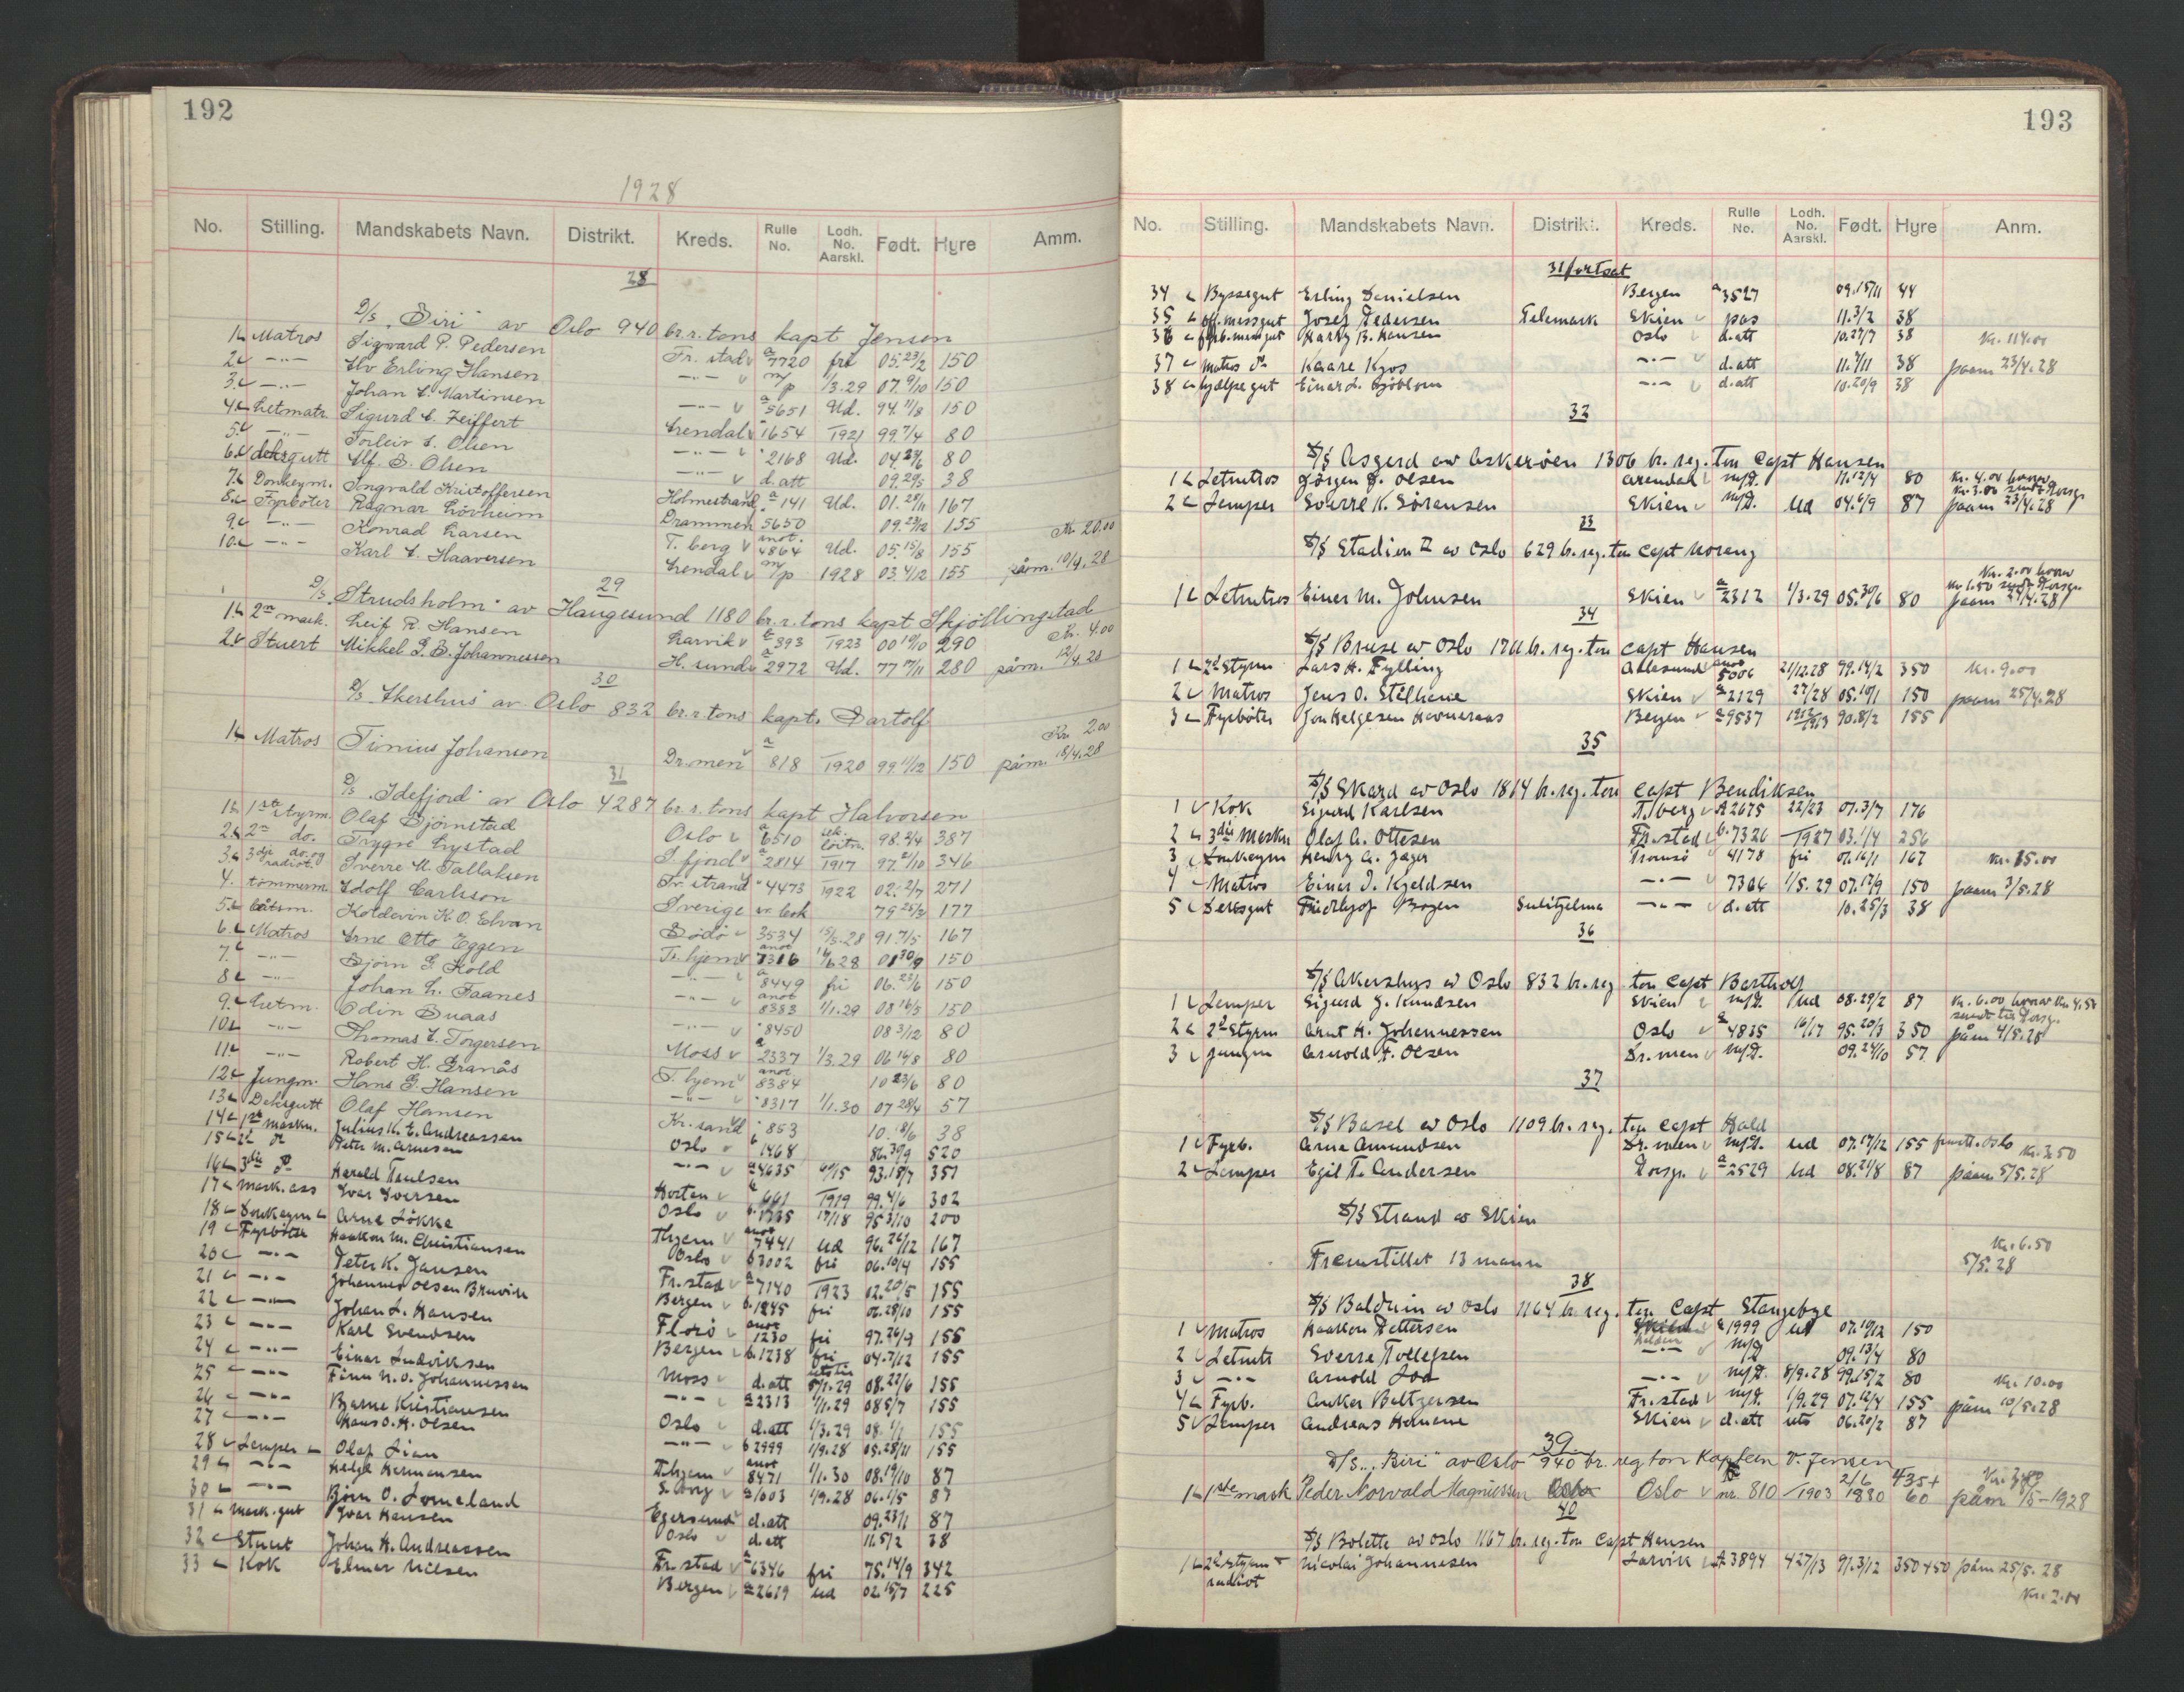 192
1928
No. Stilling. Mandskabets Navn. Distrikt. Kreds. Rulle No. Lodh. No. Aarskl. Født. Hyre Amm.
28
D/s „Siri" av Oslo 940 br.r.tons kapt Jensen
1 Matros Sigvard P. Pedersen Fr.stad a 7720 fri 05.23/2 150
2 -"- Erling Hansen -"- m/p 1/3.29 07 9/10 150
3 -"- Johan Martinsen -"- a 5651 Ud. 94.11/8 150
4 Letmatr. Sigurd Zeiffert Arendal " 1654 1921 99.7/4 80
5 -"- Torleiv Olsen -"- " 2168 Ud. 04.29/6 80
6 deksgutt Alf. S. Olsen -"- d.att 09.29/5 38
7 Donkeym. Ingvald Kristoffersen Holmestrand a 141 Ud. 01.28/11 167
8 Fyrbøter Ragnar Lövheim Drammen 5650 09.23/12 155
9 -"- Konrad Larsen T.berg anot. 4864 Ud. 05.15/8 155 Kr. 20.00
10 -"- Karl Haaversen Arendal m/p 1928 03.4/12 155 påm. 10/4.28
29
D/s „Strudsholm" av Haugesund 1180 br.r.tons kapt Skjöllingstad
1 2n mask. Leif R. Hansen Larvik 393 1923 00 19/10 290 Kr. 4.00
2 Stuert Mikkel G.B. Johannessen H.sund a 2972 Ud. 77 17/11 280 påm. 12/4.28
30
D/s „Akershus" av Oslo 832 br.r.tons kapt. Bartolf
1 Matros Tinius Johansen Dr.men a 818 1920 99 11/12 150 Kr 2.00 påm. 18/4.28
31
D/s „Idefjord" av Oslo 4287 br.r.tons kapt Halvorsen
1 1ste styrm. Olaf Bjørnstad Oslo a 6510 98.2/4 387
2 2n do. Trygve Lystad S.fjord a 2814 1917 97.2/10 346
3 3dje do. og radiot. Sverre M. Tallaksen Kr.strand " 4473 1922 02.2/7 271
4. tömmerm. Adolf Carlsson Sverige sv. bok 79 25/3 177
5 båtsm. Koldevin K.O. Elvan Bodö 3534 15/5.28 91.7/5 167
6 Matros Arne Otto Eggen Tr.hjem anot 7316 28 150
7 -"- Bjørn G. Kold -"- a 8449 fri 06.23/6 150
8 -"- Johan L. Faanes -"- anot 8383 1/1.29 08 16/5 150
9 Letm. Odin Buaas -"- " 8450 08 3/12 80
10 -"- Thomas Torgersen Moss a 2337 1/3.29 06 14/8 80
11 -"- Robert H. Granås T.hjem anot 8384 10 23/6 80
12 Jungm. Hans G. Hansen -"- " 8317 1/1.30 07 28/4 57
13 Deksgutt Olaf Hansen Kr.sand " 853 10.18/6 38
14 1ste maskn. Julius K.E. Andreassen Oslo 1468 86.30/9 520
15 2d d. Peter M. Arnesen -"- a 4635 60/15 93.18/7 351
16 3die d. Harald Paulsen Horten 661 1919 99.4/6 302
17 Mask.ass Ivar Iversen Oslo 1735 17/18 95 3/10 200
18 Donkeym Arne Løkke Thjem anot 7441 ud 96.26/12 167
19 Fyrbøter Haakon M. Christiansen Oslo b 3002 fri 06.10/4 155
20 -"- Peter K. Jansen Fr.stad a 7140 1923 02.20/5 155
21 -"- Johannes Olsen Bruvik Bergen b. 1245 fri 06.28/10 155
22 -"- Johan L. Hansen Florö anot 1230 fri 97.26/9 155
23 -"- Karl Svendsen Bergen b. 1238 fri 04.7/12 155
24 -"- Einar Ludviksen Moss d.att 5/1.29 08.22/6 155
25 -"- Finn N.O. Johannessen -"- a 2313 1/1.29 08 5/7 155
26 -"- Bjarne Kristiansen Oslo d.att 1/3.29 08.1/1 155
27 -"- Hans O.H. Olsen -"- b 2999 1/9.28 05.28/11 155
28 Lemper Olaf Lian T.hjem anot 8471 1/1.30 08.19/10 87
29 -"- Helge Hermansen S.borg a 1003 1/9.28 06.1/5 87
30 -"- Bjørn O. Lomeland Egersund d.att 09.23/1 87
31 Mask.gut Ivar Hansen Oslo d.att 11.5/2 38
32 Stuert Johan H. Andreassen Fr.stad a 6346 fri 75.14/9 342
33 Kok Elmar Nilsen Bergen a 2619 ud 02.15/7 225
193
No. Stilling. Mandskabets Navn. Distrikt. Kreds. Rulle No. Lodh. No. Aarskl. Født. Hyre Anm.
31 fortsat
34 Byssegut Erling Danielsen Bergen a 3527 09.15/11 44
35 off.messgut Josef Pedersen Telemark Skien pas 11.3/2 38
36 fyrb.messgut Harry B. Hansen Oslo d.att 10.27/7 38 Kr. 114.00
37 matros d. Kaare Kjos -"- d.att 11.7/11 38 paam 23/4.28
38 hjælpegut Einar L. Sjöblom -"- d.att 10.20/9 38
32
D/S Asgerd av Askerøen 1306 br.reg.ton Capt Hansen
1 Letmtros Jörgen J. Olsen Arendal m/p. 11.12/4 80 Kr. 4.00 hvorav Kr. 3.00 sendt Porsgr.
2 Lemper Sverre K. Sörensen Skien m/p. ud 04.6/9 87 paam 23/4.28
33
D/S Stadion II av Oslo 629 br.reg.ton Capt Noreng
Kr. 2.00 hvorav Kr 1.50 sendt Porsgr.
1 Letmtros Einer M. Johnsen Skien a 2312 1/3.29 05.30/6 80 paam 25/4.28
34
D/S Bruse av Oslo 1711 br.reg.ton Capt Hansen
1 2d Styrm Lars H. Fylling Aalesund anot 5006 21/12.28 99.14/2 350 Kr. 9.00
2 Matros Jens O. Stillheie Skien a 2129 27/28 05.10/1 150 paam 25/4.28
3 Fyrbøter Jon Helgesen Havneraas Bergen a 9537 90.8/2 155
35
D/S Skard av Oslo 1814 br.reg.ton Capt Bendiksen
1 Kok Sigurd Karlsen T.berg A 2675 22/23 07.3/7 176
2 3die Maskn Olaf A. Ottesen Fr.stad b. 7326 1927 03.1/4 256
3 Donkeym Henry A. Jager Tromsö 4178 fri 07.16/1 167 Kr. 15.00
4 Matros Einar I. Kjeldsen -"- 7306 1/5.29 07.17/9 150 paam 3/5.28
5 Deksgut Fridthjof Bogen Sulitjelma -"- d.att 10.25/3 38
36
D/S Akershus av Oslo 832 br.reg ton Capt Bartholf
1 Lemper Sigurd J. Knudsen Skien m/p. ud 08.29/2 87 Kr. 6.00 hvorav Kr 4.50 sendt til Porsgr.
2 2d Styrm Knut H. Johannessen Oslo a 4835 16/17 95.20/3 350 påm 4/5.28
3 jungm Arnold F. Olsen Dr.men m/p. 09.24/10 57
37
D/S Basel av Oslo 1109 br.reg.ton Capt Hald
1 Fyrb. Arne Amundsen Dr.men m/p. ud 07.17/12 155 fmstt. Oslo Kr. 3.50
2 Lemper Egil T. Andersen Porsgr. a 2529 ud 08.21/8 87 paam 5/5.28
D/S Strand av Skien
Fremstillet 13 mann Kr. 6.50 5/5.28
38
D/S Balduin av Oslo 1164 br.reg.ton Capt Stangebye
1 Matros Haakon Pettersen Skien 1999 ud 07.19/12 150
2 Letmts Sverre Tollefsen -"- m/p 09.13/4 80
3 -"- Arnold Loe -"- m/p. 8/9.28 99.15/2 80 Kr. 10.00
4 Fyrb. Anker Baltzersen Fr.stad m/p. 1/9.29 07.12/4 155 påm 10/5.28
5 Lemper Andreas Skien d.att uts 06.20/2 87
39
D/S. „Biri" av Oslo 940 br.reg ton Kaptein V. Jensen
1 1ste mask Peder Norvald Magnussen Oslo Oslo nr. 810 1903 2/6 1880 435+60 påm 1/5-1928
40
D/S Bolette av Oslo 1167 br.reg.ton Capt Hansen
1 2d Styrm + radiot Nicolai Johannesen Larvik A 3894 427/13 91.3/12 350+50 påm 25/5.28
Kr. 2.00